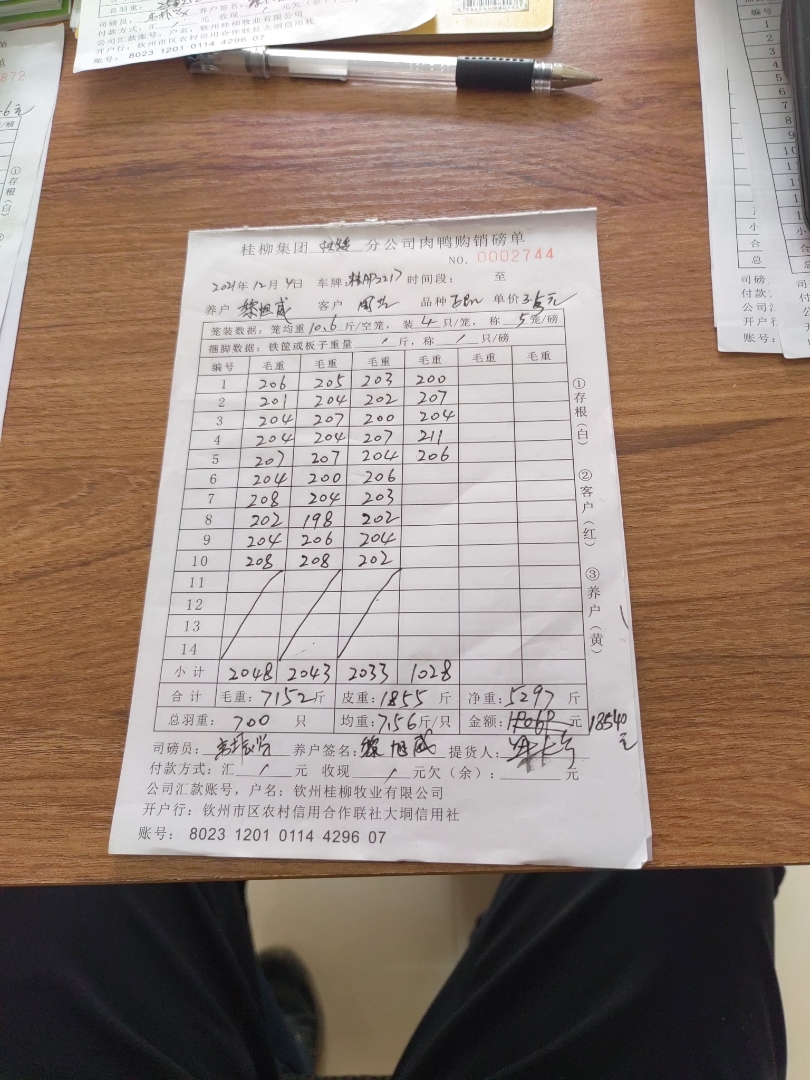 户名：钦州桂柳牧业有限公司
开户行：钦州市区农村信用合作联社大垌信用社
账号：8023 1201 0114 4296 07
桂柳集团 分公司肉鸭购销磅单
NO. 0002744
2021年12月4日 车牌: 时间段： 至
养户 黎旭威 客户 品种 单价
笼装数据：笼均重10.6斤/空笼，装4只/笼，称5笼/磅
捆脚数据：铁筐或板子重量 / 斤，称 / 只/磅
编号 毛重 毛重 毛重 毛重 毛重 毛重
1 206 205 203 200
2 201 204 202 207
3 204 207 200 204
4 204 204 207 211
5 207 207 204 206
6 204 200 206
7 208 204 203
8 202 198 202
9 204 206 204
10 208 208 202
11
12
13
14
小计 2048 2043 2033 1028
合计 毛重：7152斤 皮重：1855斤 净重：5297斤
总羽重：700 只 均重：7.56斤/只 金额： 元 18540元
司磅员： 养户签名：黎旭威 提货人：
付款方式：汇 / 元 收现 / 元欠（余）： 元
公司汇款账号，户名：钦州桂柳牧业有限公司
开户行：钦州市区农村信用合作联社大垌信用社
账号： 8023 1201 0114 4296 07
①存根（白）
②客户（红）
③养户（黄）